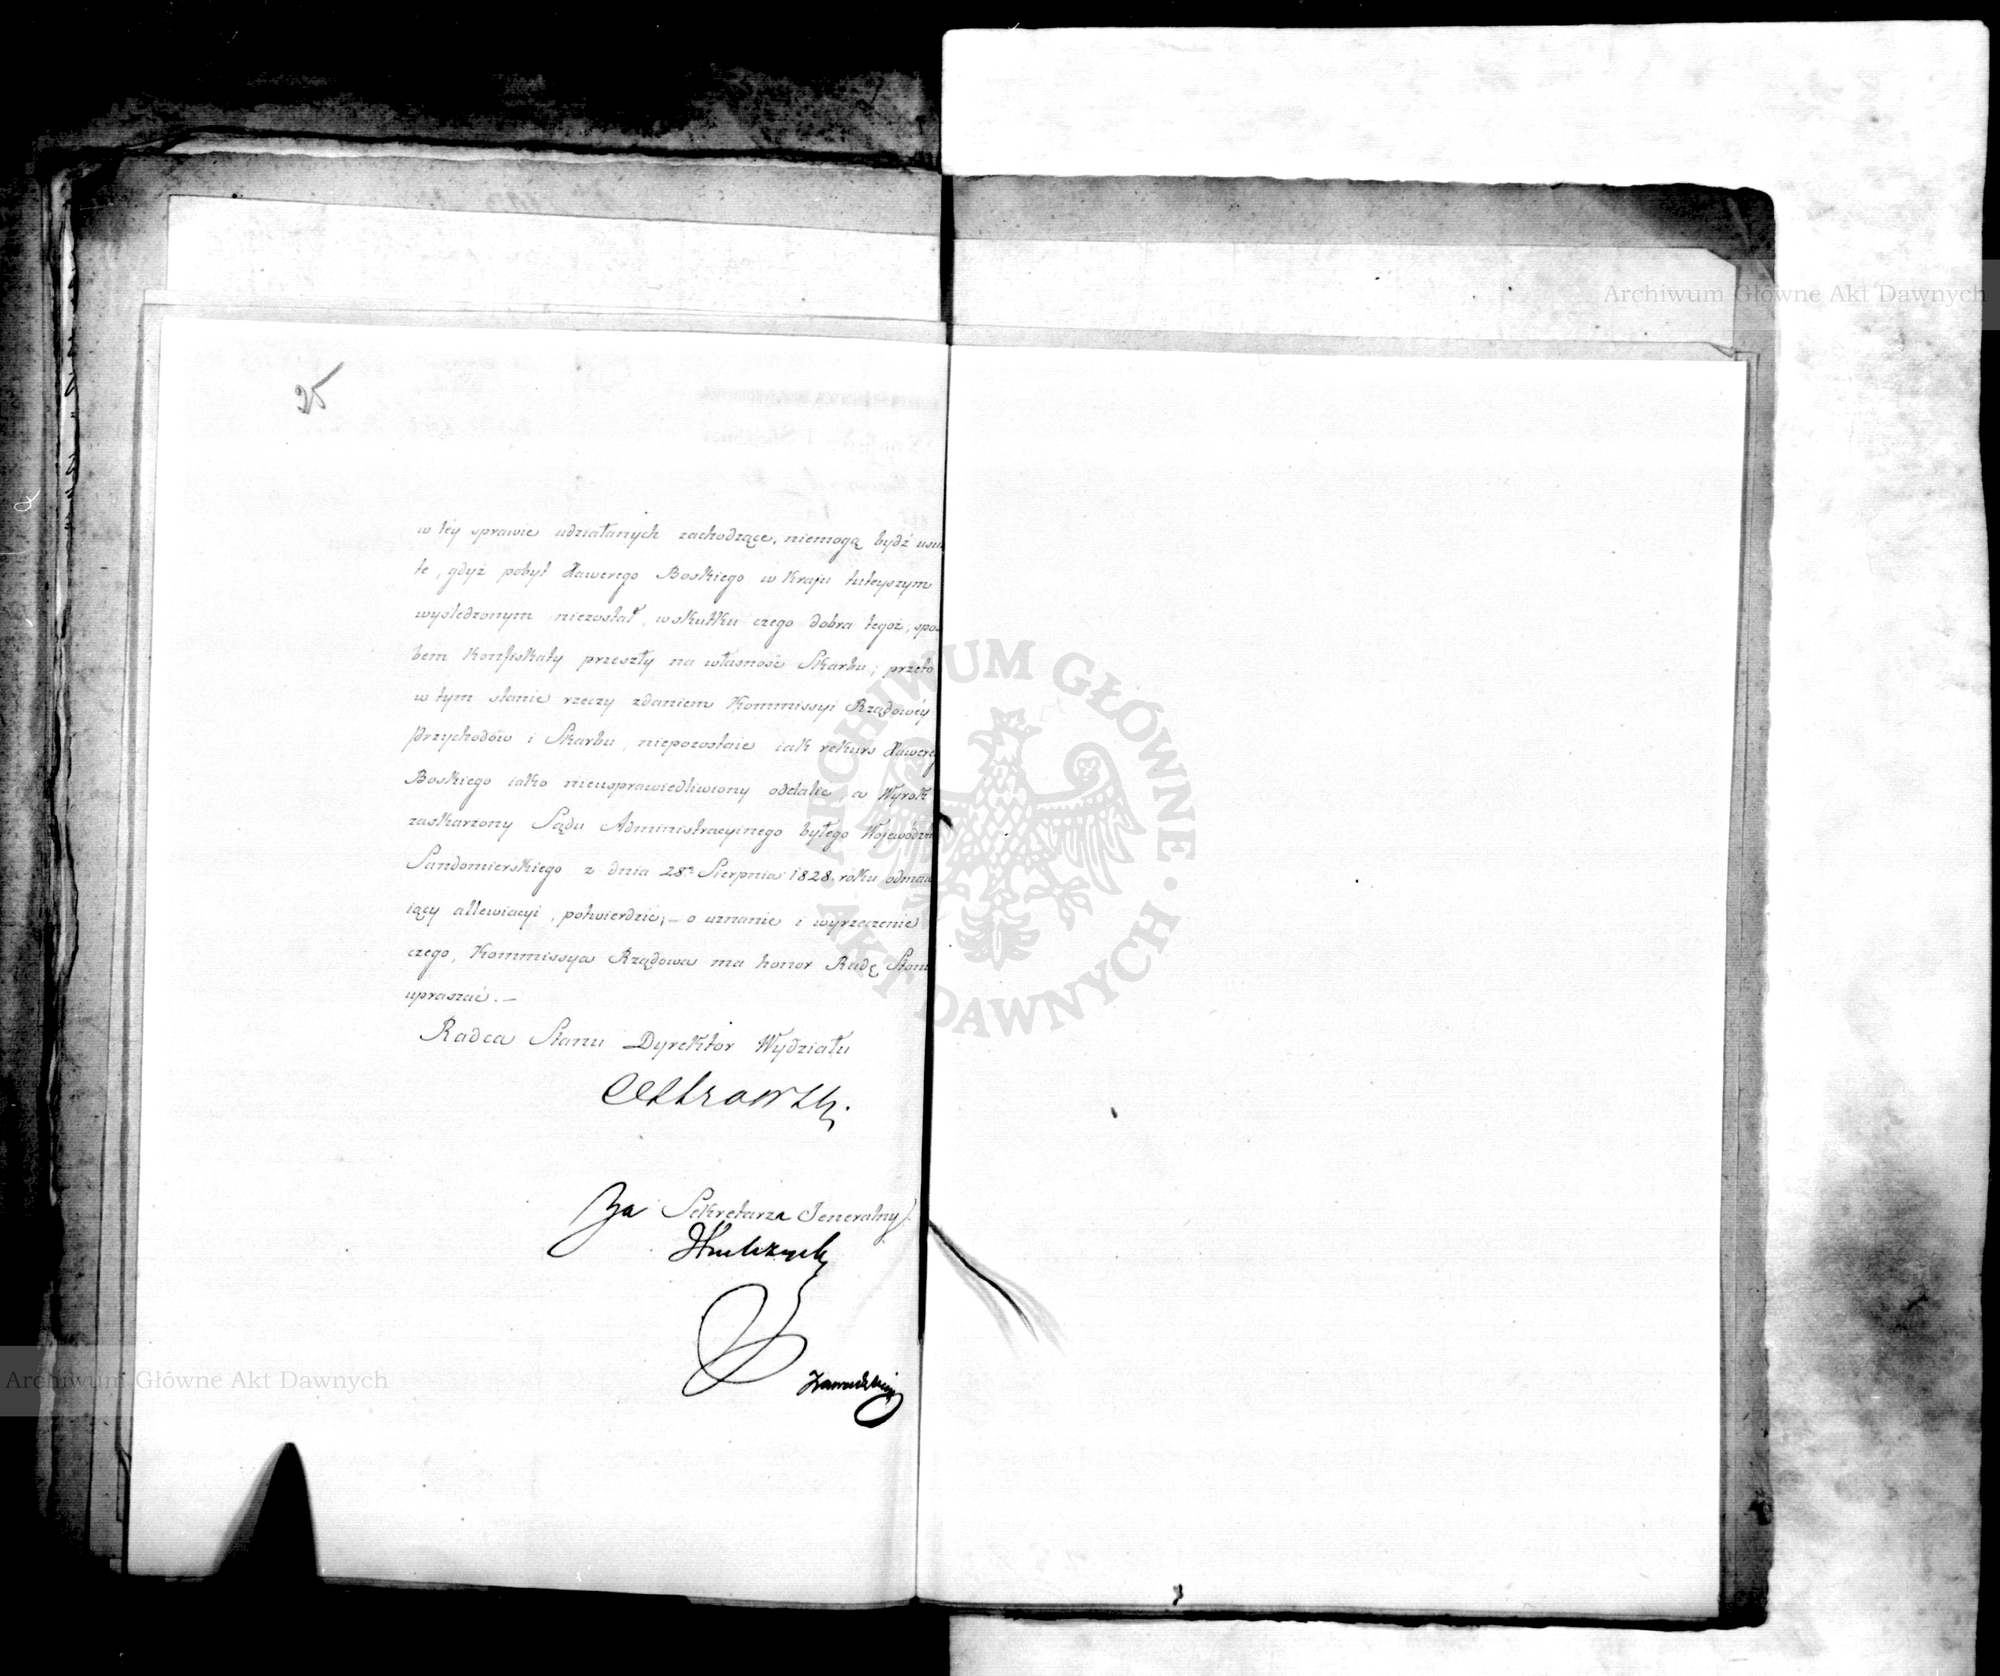 25
w téy sprawie udziałanych zachodzące, niemogą bydź usu
te, gdyż pobyt Xawerego Boskiego w Kraju tuteyszym
wyśledzonym niezostał, wskutku czego dobra tegoż, spos
bem Konfiskaty przeszły na własność Skarbu; przeto
w tym stanie rzeczy zdaniem Kommissyi Rządowéy
Przychodów i Skarbu, niepozostaie iak rekurs Xawere
Boskiego iako nieusprawiedliwiony oddalić, a Wyrok
zaskarzony Sądu Administracyinego byłego Wojewódz
Sandomierskiego z dnia 28. Sierpnia 1828 roku odmaw
iący allewiacyi, potwierdzić; – o uznanie i wyrzeczenie
czego, Kommissya Rządowa ma honor Radę Stanu
upraszać. –
Radca Stanu Dyrektor Wydziału
Za Sekretarza Jeneralny
Archiwum Główne Akt Dawnych
Archiwum Główne Akt Dawnych
ARCHIWUM GŁÓWNE • AKT DAWNYCH •